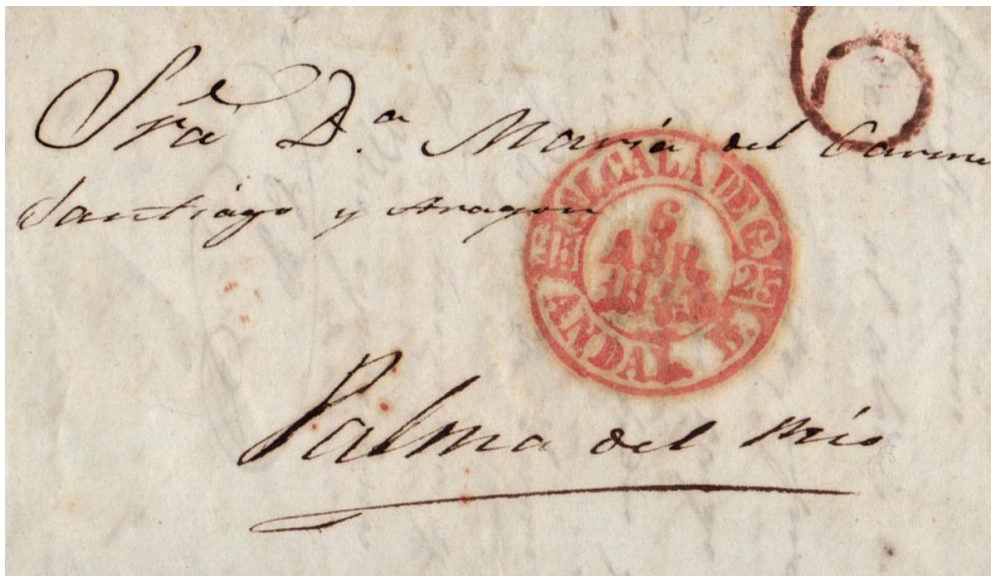 6
Sra D.ª María del Carmen
Santiago y Aragon
ALCALÁ DE G.
6
ABR.
25
ANDA
Palma del Rio